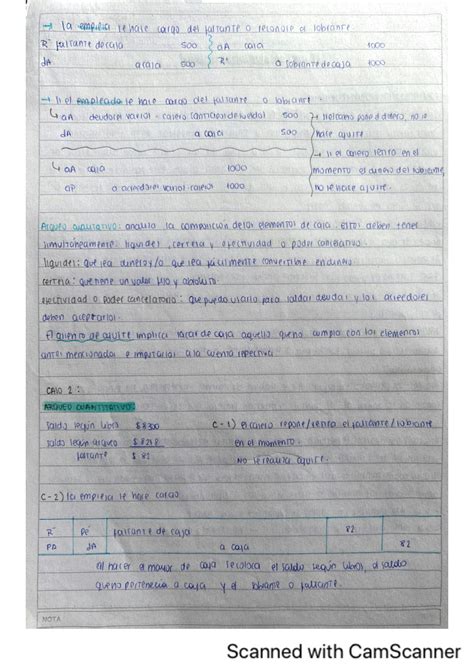 → la empresa se hace cargo del faltante o reconoce el sobrante
R⁻ faltante de caja 500 +A caja 1000
-A a caja 500 R⁺ a sobrante de caja 1000
→ si el empleado se hace cargo del faltante o sobrante.
↳ +A deudores varios - cajero 500 → si el cajero pone el dinero, no se
-A a caja 500 hace ajuste
→ si el cajero retira en el
↳ +A caja 1000 momento el dinero del sobrante,
+P a acreedores varios cajero 1000 no se hace ajuste.
Arqueo cualitativo: analiza la composición de los elementos de caja. Estos deben tener
simultáneamente: liquidez, certeza y efectividad o poder cancelatorio.
liquidez: que sea dinero y/o que sea fácilmente convertible en dinero.
certeza: que tiene un valor fijo y absoluto.
efectividad o Poder cancelatorio: que puedo usarlo para saldar deudas y los acreedores
deben aceptarlos.
El asiento de ajuste implica sacar de caja aquello que no cumpla con los elementos
antes mencionados e imputarlos a la cuenta respectiva.
CASO 2:
ARQUEO CUANTITATIVO:
Saldo según libros $ 8300 C-1) El cajero repone/retira el faltante/sobrante
saldo según arqueo $ 8218 en el momento.
faltante $ 82 NO se realiza ajuste.
C-2) la empresa se hace cargo
R⁻ faltante de caja 82
-A a caja 82
Al hacer el mayor de caja se coloca el saldo según libros, el saldo
que no pertenecía a caja y el sobrante o faltante.
NOTA
Scanned with CamScanner